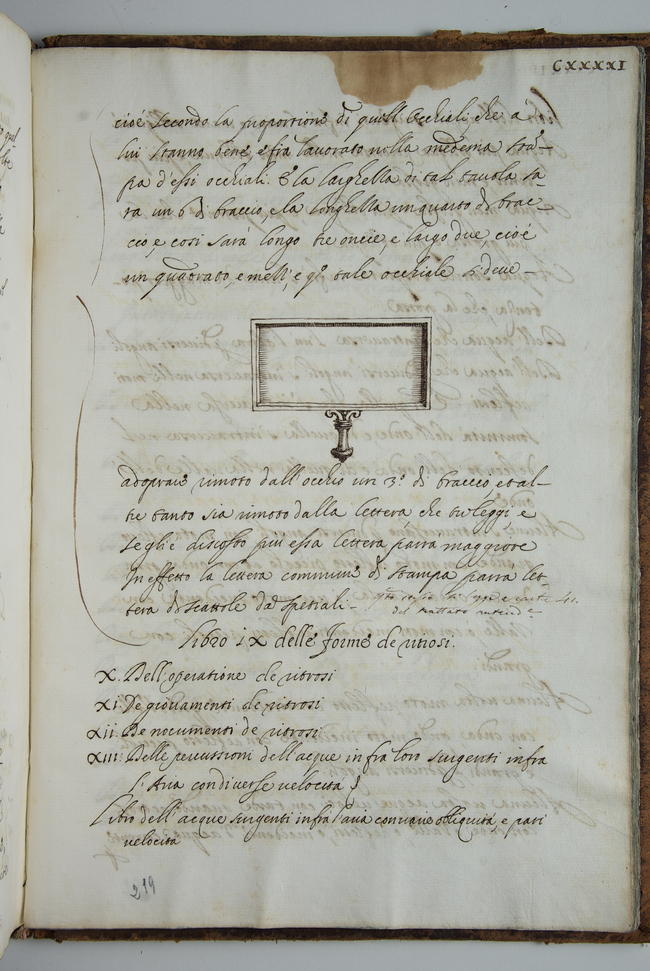 CXXXXI
cioè secondo la proportione di quelli Occhiali che a
lui stanno bene, e sia lavorato nella medema stã-
pa d'essi occhiali. E la larghella di tal tavola sa-
ra un 6 di braccio, e la longhella un quarto di brac-
cio, e così sarà longo tre oncie, e largo due, cioè
un quadrato, e mell', e qº tale occhiale si deve-
adoprare rimoto dall'occhio un 3º di braccio et al-
tre tanto sia rimoto dalla lettera che tu leggi, e
se gli è discosto più essa lettera parra maggiore
In effetto la lettera commune di stampa parrà let-
tera di scattole da spetiali-
del trattato
Libro iX delle forme de ritrosi.
X. Dell'operatione de ritrosi
xi. De giovamenti de ritrosi
xii. De nocumenti de ritrosi
xiii. Delle percussioni dell'acque infra loro surgenti infra
l'Aria con diverse velocità
Libro dell'acque surgenti infra l'aria con varie obliquità, e pari
velocita
219